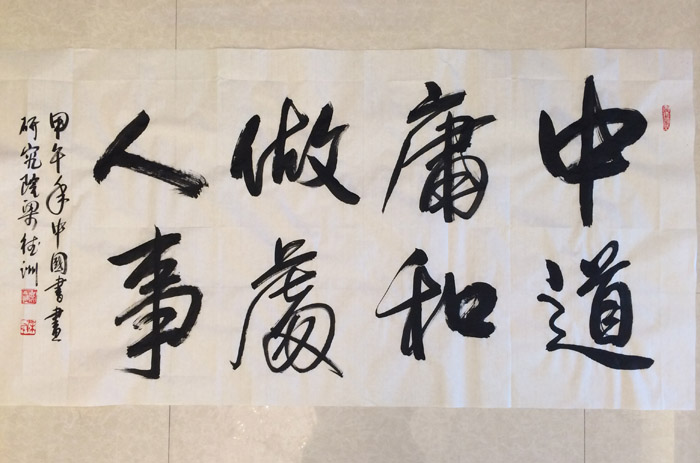 中庸做人
道和處事
甲午年中國書畫
研究院梁